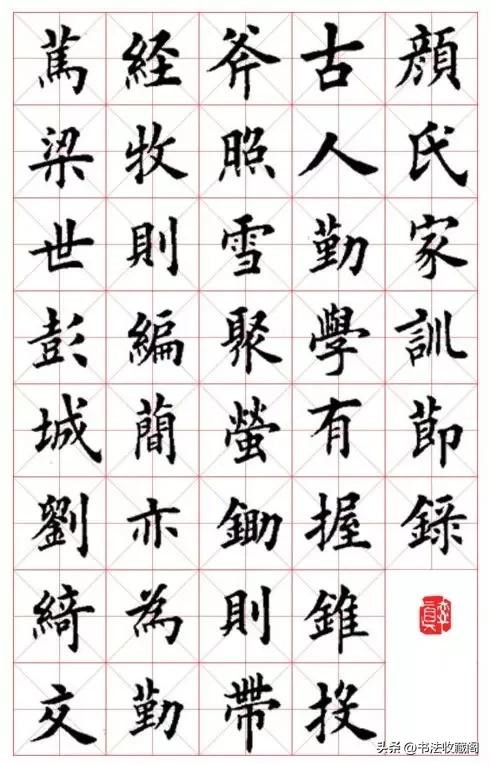 顔氏家訓節録
古人勤學有握錐投
斧照雪聚螢鋤則帶
経牧則編簡亦為勤
篤梁世彭城劉綺交
头条 @书法收藏阁